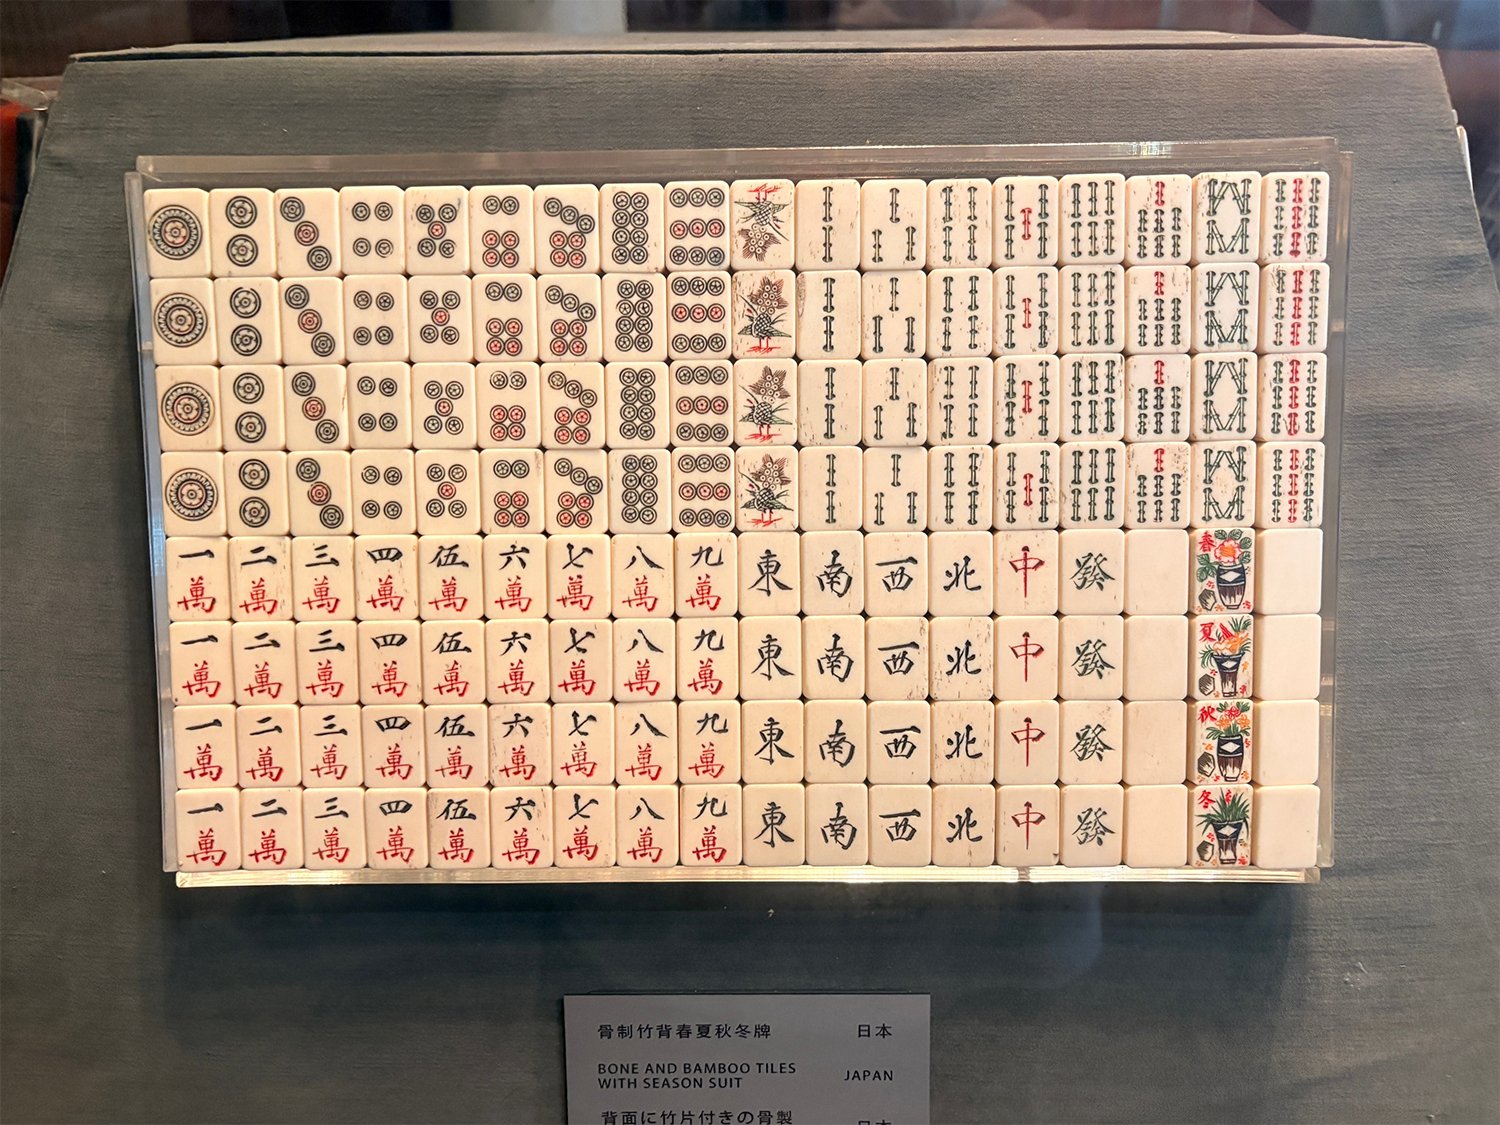 一 二 三 四 伍 六 七 八 九 東 南 西 北 中 發 春
萬 萬 萬 萬 萬 萬 萬 萬 萬
一 二 三 四 伍 六 七 八 九 東 南 西 北 中 發 夏
萬 萬 萬 萬 萬 萬 萬 萬 萬
一 二 三 四 伍 六 七 八 九 東 南 西 北 中 發 秋
萬 萬 萬 萬 萬 萬 萬 萬 萬
一 二 三 四 伍 六 七 八 九 東 南 西 北 中 發 冬
萬 萬 萬 萬 萬 萬 萬 萬 萬
骨制竹背春夏秋冬牌 日本
BONE AND BAMBOO TILES
WITH SEASON SUIT JAPAN
背面に竹片付きの骨製 日本